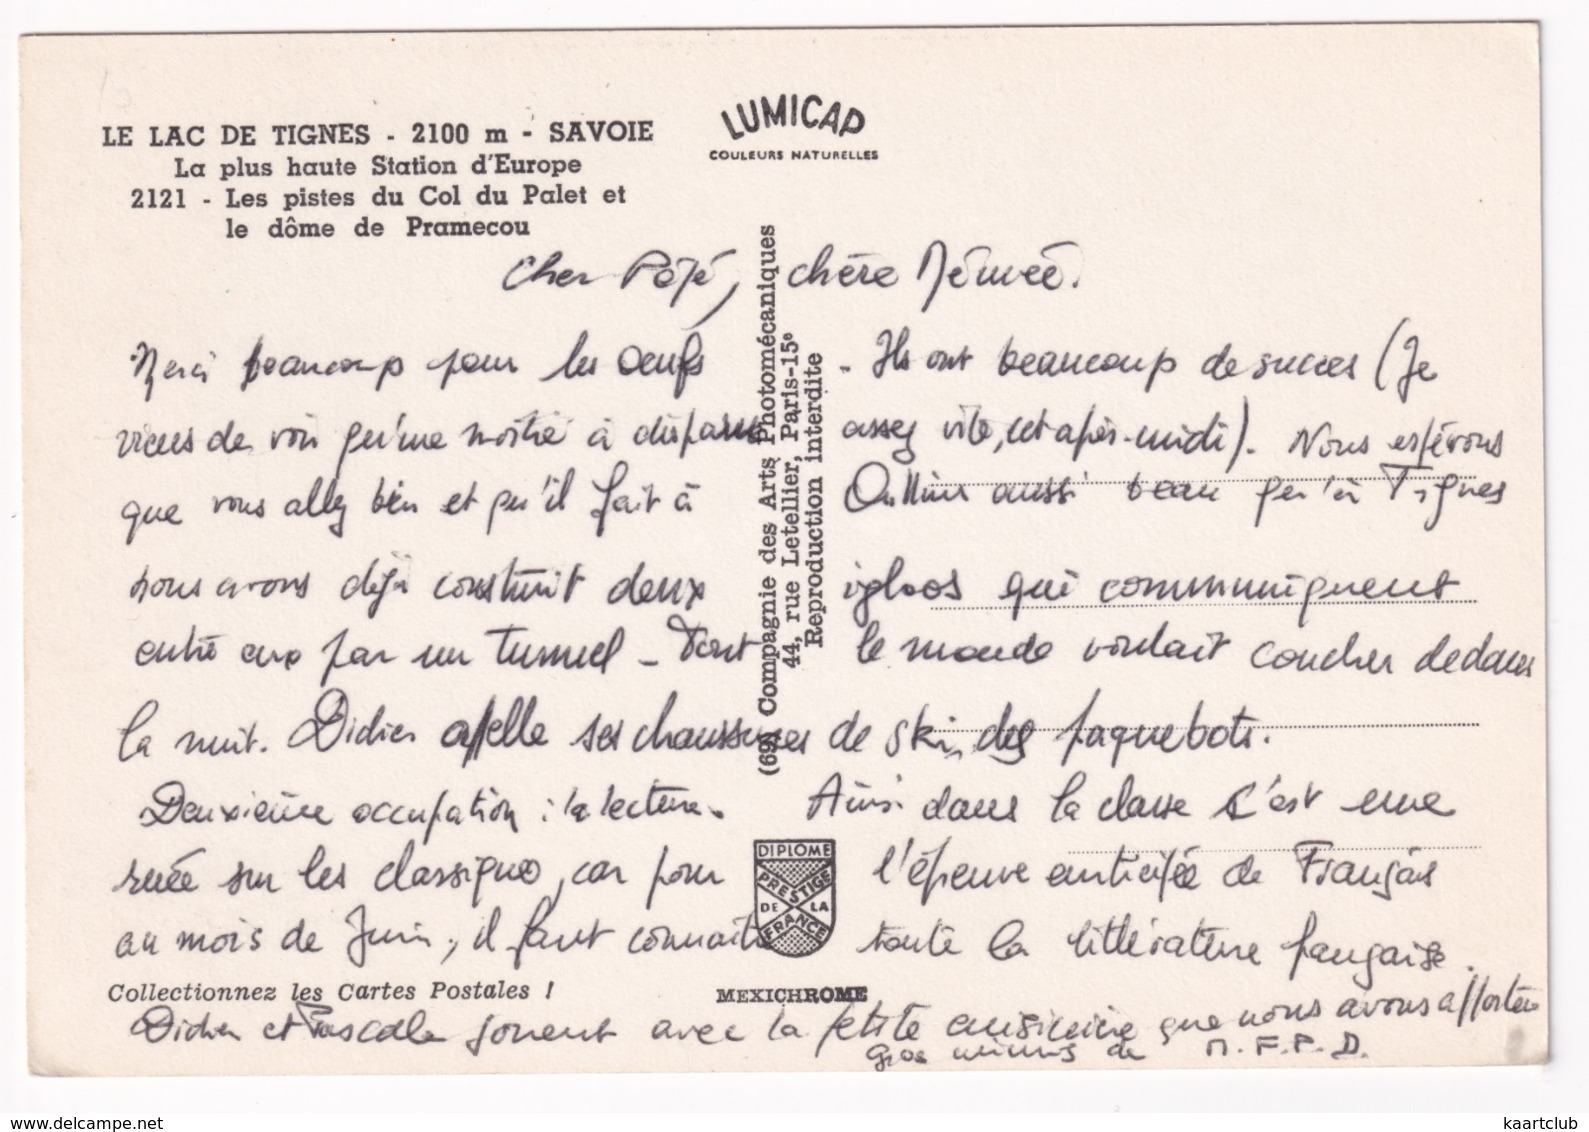 LE LAC DE TIGNES - 2100 m - SAVOIE
La plus haute Station d'Europe
2121 - Les pistes du Col du Palet et
le dôme de Pramecou
LUMICAP
COULEURS NATURELLES
(69) Compagnie des Arts Photomécaniques
44, rue Letellier, Paris-15e
Reproduction interdite
Cher Pépé, chère Mémée.
Merci beaucoup pour les oeufs. Ils ont beaucoup de succès (Je
viens de voir qu'une moitié a disparu assez vite, cet après-midi). Nous espérons
que vous allez bien et qu'il fait à Oullins aussi beau qu'à Tignes
nous avons déjà construit deux igloos qui communiquent
entre eux par un tunnel - Tout le monde voulait coucher dedans
la nuit. Didier appelle ses chaussures de ski, des paquebots.
Deuxième occupation : la lecture. Ainsi dans la classe c'est une
ruée sur les classiques, car pour l'épreuve anticipée de Français
au mois de Juin, il faut connaître toute la littérature française.
Collectionnez les Cartes Postales !
DIPLOME
PRESTIGE
DE LA
FRANCE
MEXICHROME
Didier et Pascale jouent avec la petite cuisinière que nous avons apportée
Gros mimis de M.F.P.D.
kaartclub
www.delcampe.net